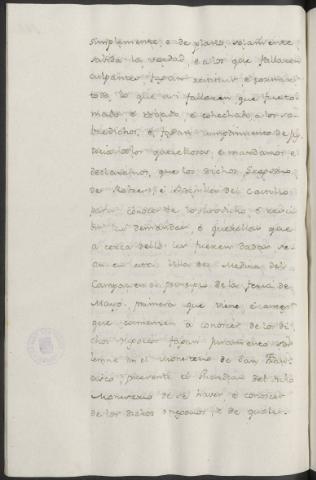 simplemente, e de plano, solamente
sabida la verdad, e a los que fallaren
culpantes fagan restituir e tornar
todo lo que asi fallaren que fue to-
mado, e robado, e cohechado a los so-
bredichos, e fagan cumplimiento de jus-
ticia a los querellosos, e mandamos e
declaramos, que los dichos
de e del Castillo
para conocer de lo sobredicho, e recivir
las demandas, e querellas que
a cerca dello les fueren dadas, se-
an en esta villa de Medina del
Campo en el principio de la feria de
Mayo, primera que viene e antes
que comiencen a conocer de los di-
chos negocios fagan juramento so-
lenne en el Monesterio de San Fran-
cisco, presente el Guardian del dicho
Monesterio de se haver, e conocer
de los dichos negocios, e de quales-